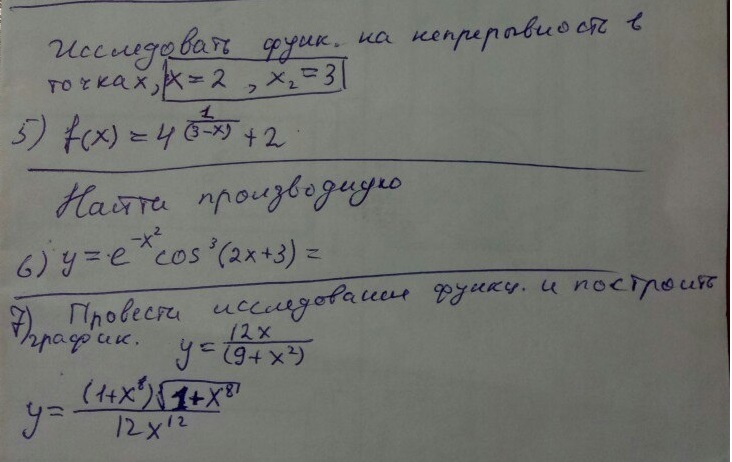 Исследовать функ. на непрерывность в
точках, x=2, x₂=3
5) f(x) = 4^(1/(3-x)) + 2
Найти производную
6) y = e^(-x²) cos³(2x+3) =
7) Провести исследование функц. и построить
график. y = 12x/(9+x²)
y = (1+x⁸)√(1+x⁸)/12x¹²